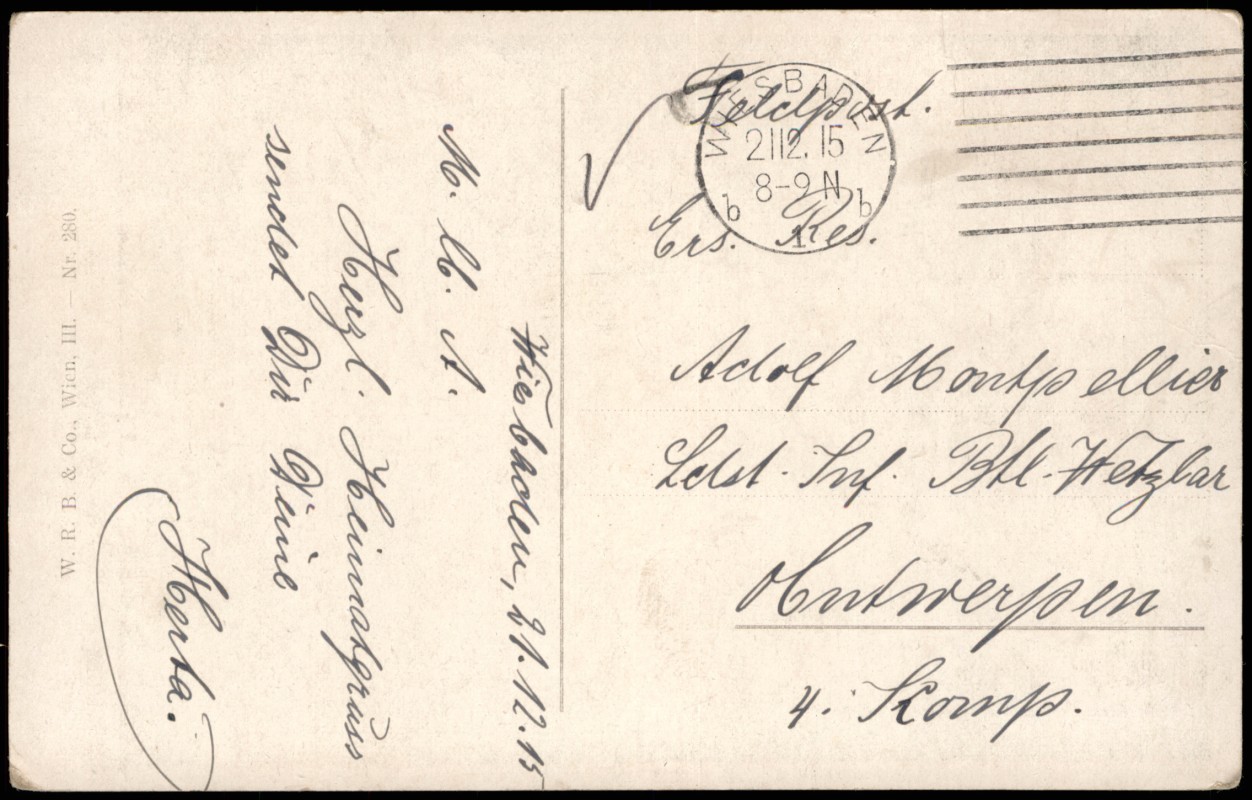 Wiesbaden, 21.12.15
M. lb. A.
Herzl. Heimatgruss
sendet Dir Deine
Herta.
W. R. B. & Co., Wien, III. — Nr. 280.
Feldpost.
WIESBADEN
2112.15
8-9 N
b b
1
Ers. Res.
Adolf Montpellier
Ldst. Inf. Btl. Wetzlar
Antwerpen.
4. Komp.